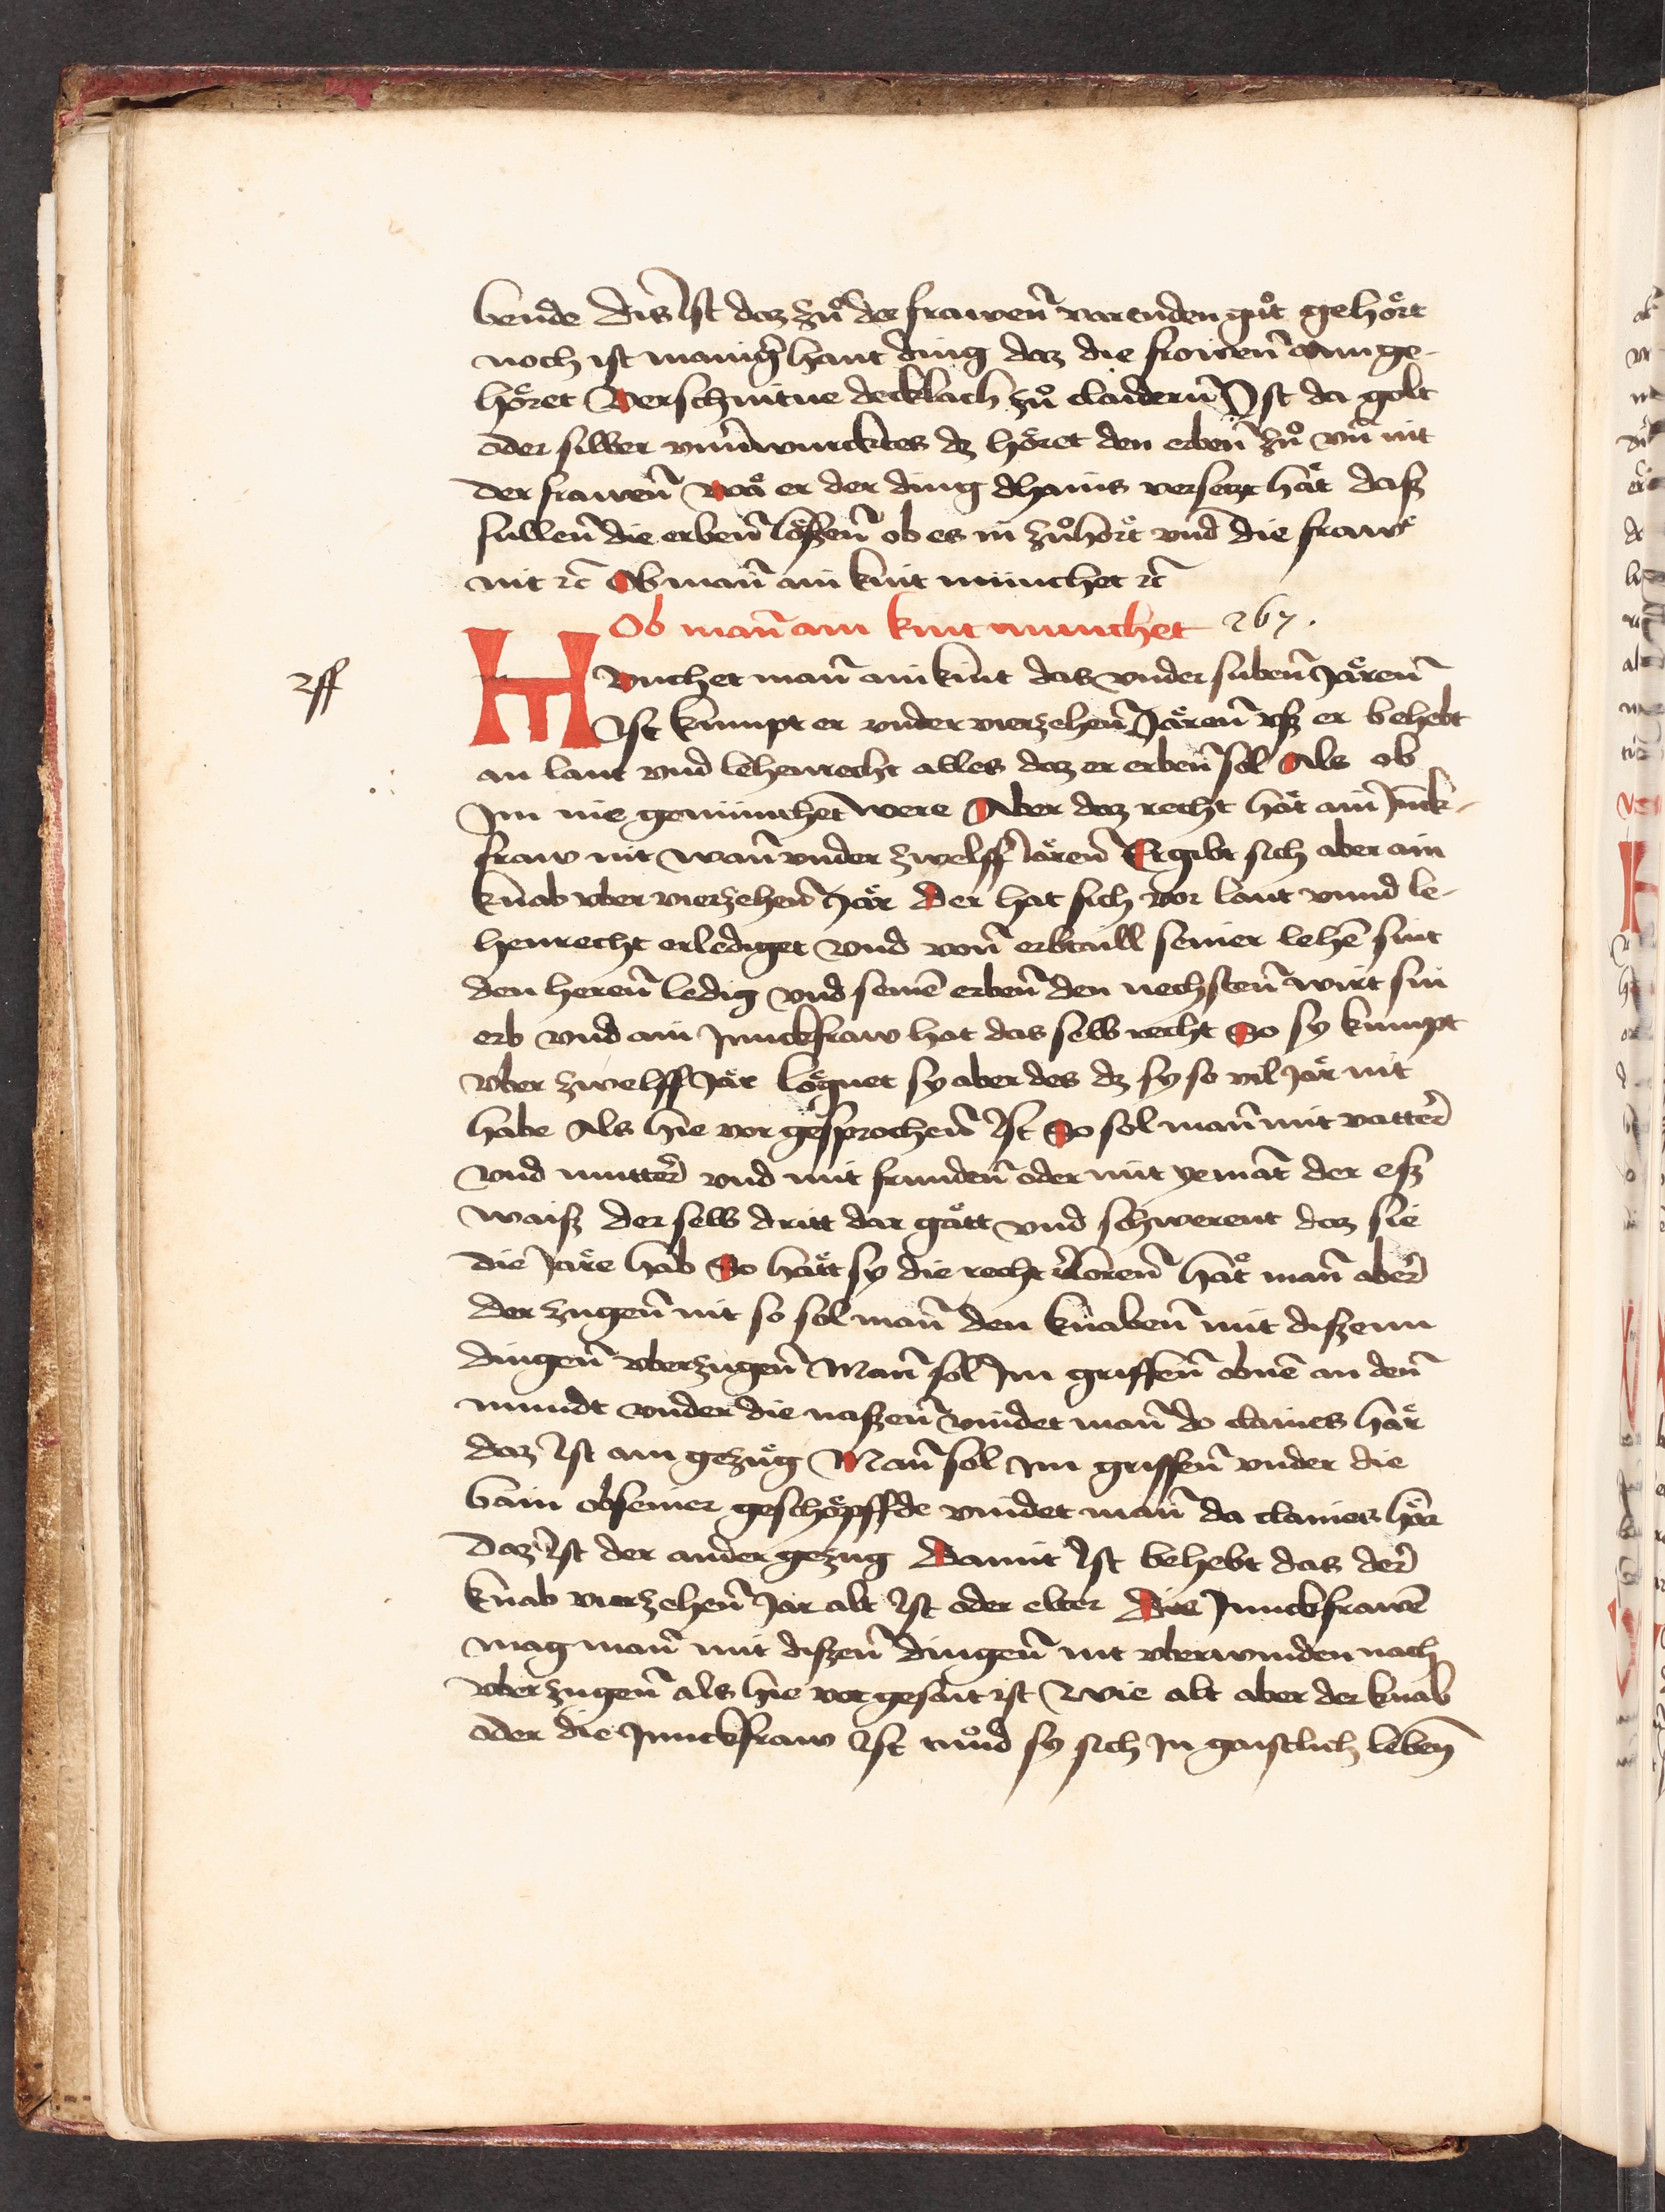 bende dis Ist daz zuͦ der frawen̄ varenden guͦt gehoͤrt
noch ist manig̕ hant ding daz die frowen̄ ann ge-
hoͤret Verschnitne decklach zuͦ claidern̄ Ist da golt
oder silber vnu̕wurcktes dz hoͤret den erben̄ zuͦ vn̄ nit
der frawen̄ waͤ er der ding dhains versetzt haͤt dasz
sullen̄ die erben̄ loͤszen̄ ob es in zuͦhoͤrt vnd die fraw
nit ⁊c̄ Ob man̄ ain kint münchet ⁊c̄
Ob man̄ ain kint munchet 267.
Munchet man̄ ain kint das vnder suben̄ Jaͤren̄
Ist kumpt er vnder vierzehen̄ Jaͤren̄ vsz er behebt
an lant vnd lehenrecht alles daz er erben̄ sol Als ob
Im nie gemünchet were Aber daz recht haͤt ain Junck-
fraw nit wan̄ vnder zwelff Jaͤren̄ Ergibt sich aber ain
knab vber vierzehen̄ Jaͤr Der hat sich vor lant vnnd le-
henrecht erlediget vnd von̄ erbtaill seiner lehē sint
den heren̄ ledig vnd seinē erben̄ den nechsten̄ wirt sin
erb vnd ain Junckfraw hat das selb recht So sy kumpt
vber zwelff Jaͤr loͤgnet sy aber des dz sy so vil Jaͤr nit
habe Als hie vor gesprochen̄ Ist So sol man̄ mit vatter̕
vnd mutter̕ vnd mit frunden̄ oder mit yemāt der esz
waisz der selb dritt dar gaͤtt vnd schwerent daz sie
die Jaͤre hab So haͤtt sy die recht v̕loren̄ haͤt man̄ aber̕
der zugen̄ nit so sol man̄ den knaben̄ mit diszenn
dingen̄ vberzugen̄ Man̄ sol Im griffen̄ obnē an den̄
mundt vnder die naszen̄ vindet man̄ do claines haͤr
daz Ist ain gezuͤg Man̄ sol Im griffen̄ vnder die
bain ob seiner geschoͤpffde vindet man̄ da claines haͤr
daz Ist der ander gezug Damit Ist behebt das der̕
knab vierzehen̄ Jar alt Ist oder elter Die Junckfrawē
mag man̄ mit diszen̄ dingen̄ nit vberwinden nach
vberzugen̄ als hie vor gesait ist Wie alt aber der knab
oder die Junckfraw Ist tuͦnd sy sich In gaistlich leben̄